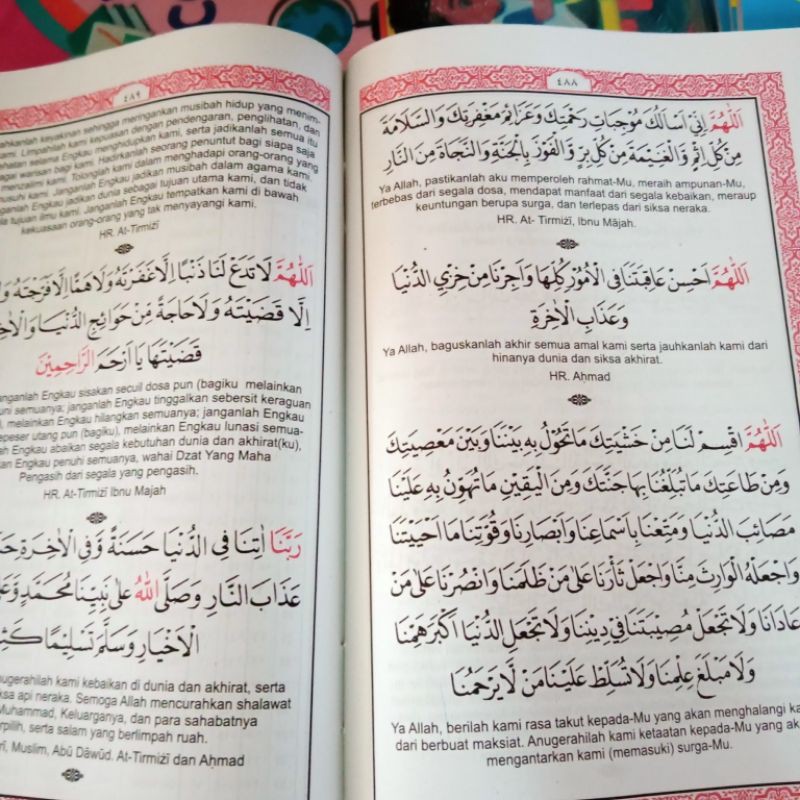 ٤٨٨
اَللّٰهُمَّ اِنِّيْ اَسْأَلُكَ مُوْجِبَاتِ رَحْمَتِكَ وَعَزَائِمَ مَغْفِرَتِكَ وَالسَّلَامَةَ
مِنْ كُلِّ اِثْمٍ وَّالْغَنِيْمَةَ مِنْ كُلِّ بِرٍّ وَّالْفَوْزَ بِالْجَنَّةِ وَالنَّجَاةَ مِنَ النَّارِ
Ya Allah, pastikanlah aku memperoleh rahmat-Mu, meraih ampunan-Mu,
terbebas dari segala dosa, mendapat manfaat dari segala kebaikan, meraup
keuntungan berupa surga, dan terlepas dari siksa neraka.
HR. At- Tirmizī, Ibnu Mājah.
اَللّٰهُمَّ اَحْسِنْ عَاقِبَتَنَا فِى الْاُمُوْرِ كُلِّهَا وَاَجِرْنَا مِنْ خِزْيِ الدُّنْيَا
وَعَذَابِ الْاٰخِرَةِ
Ya Allah, baguskanlah akhir semua amal kami serta jauhkanlah kami dari
hinanya dunia dan siksa akhirat.
HR. Aḥmad
اَللّٰهُمَّ اقْسِمْ لَنَا مِنْ خَشْيَتِكَ مَا تَحُوْلُ بِهِ بَيْنَنَا وَبَيْنَ مَعْصِيَتِكَ
وَمِنْ طَاعَتِكَ مَا تُبَلِّغُنَا بِهَا جَنَّتَكَ وَمِنَ الْيَقِيْنِ مَا تُهَوِّنُ بِهِ عَلَيْنَا
مَصَائِبَ الدُّنْيَا وَمَتِّعْنَا بِاَسْمَاعِنَا وَاَبْصَارِنَا وَقُوَّتِنَا مَا اَحْيَيْتَنَا
وَاجْعَلْهُ الْوَارِثَ مِنَّا وَاجْعَلْ ثَأْرَنَا عَلٰى مَنْ ظَلَمَنَا وَانْصُرْنَا عَلٰى مَنْ
عَادَانَا وَلَا تَجْعَلْ مُصِيْبَتَنَا فِيْ دِيْنِنَا وَلَا تَجْعَلِ الدُّنْيَا اَكْبَرَ هَمِّنَا
وَلَا مَبْلَغَ عِلْمِنَا وَلَا تُسَلِّطْ عَلَيْنَا مَنْ لَّا يَرْحَمُنَا
Ya Allah, berilah kami rasa takut kepada-Mu yang akan menghalangi
dari berbuat maksiat. Anugerahilah kami ketaatan kepada-Mu yang
mengantarkan kami (memasuki) surga-Mu.
٤٨٩
keyakinan sehingga meringankan musibah hidup yang
kami. Limpahilah kami kepuasan dengan pendengaran, penglihatan, dan
Engkau menghidupkan kami, serta jadikanlah semua itu
warisan bagi kami. Hadirkanlah seorang penuntut bagi siapa saja
menzalimi kami. Tolonglah kami dalam menghadapi orang-orang yang
kami. Janganlah Engkau jadikan musibah dalam agama kami.
Engkau jadikan dunia sebagai tujuan utama kami, dan tidak
tujuan ilmu kami. Janganlah Engkau tempatkan kami di bawah
kekuasaan orang-orang yang tak menyayangi kami.
HR. At-Tirmizī
اَللّٰهُمَّ لَا تَدَعْ لَنَا ذَنْبًا اِلَّا غَفَرْتَهُ وَلَا هَمًّا اِلَّا فَرَّجْتَهُ
اِلَّا قَضَيْتَهُ وَلَا حَاجَةً مِّنْ حَوَائِجِ الدُّنْيَا
قَضَيْتَهَا يَا اَرْحَمَ الرَّاحِمِيْنَ
Engkau sisakan secuil dosa pun (bagiku melainkan
semuanya; janganlah Engkau tinggalkan sebersit keraguan
melainkan Engkau hilangkan semuanya; janganlah Engkau
utang pun (bagiku), melainkan Engkau lunasi
Engkau abaikan segala kebutuhan dunia dan akhirat(ku),
Engkau penuhi semuanya, wahai Dzat Yang Maha
Pengasih dari segala yang pengasih.
HR. At-Tirmizī Ibnu Majah
رَبَّنَا اٰتِنَا فِى الدُّنْيَا حَسَنَةً وَّفِى الْاٰخِرَةِ
عَذَابَ النَّارِ وَصَلَّى اللّٰهُ عَلٰى نَبِيِّنَا مُحَمَّدٍ
الْاَخْيَارِ وَسَلَّمَ تَسْلِيْمًا
kami kebaikan di dunia dan akhirat, serta
api neraka. Semoga Allah mencurahkan shalawat
Muhammad, Keluarganya, dan para sahabatnya
serta salam yang berlimpah ruah.
Muslim, Abū Dāwūd. At-Tirmizī dan Aḥmad